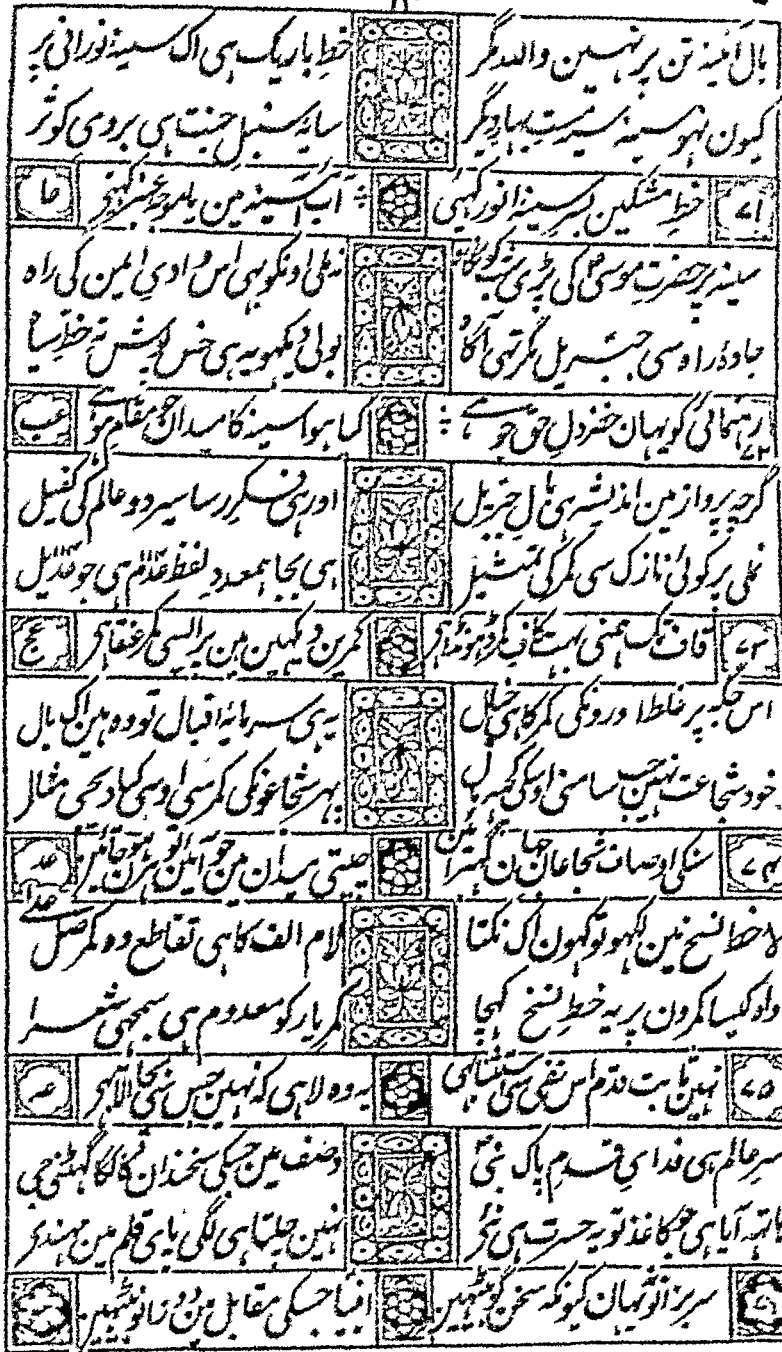 بال آئینۂ تن پر نہین واللہ مگر خطِ باریک ہی اک سینۂ نورانی پر
کیون نہو سینہ سیرت بہار دیگر سایۂ سنبلِ جنت ہی بروی کوثر
۷۱ خطِ مشکین بسرِ سینۂ انور کہیی آبِ آئینہ مین یا موجۂ عنبر کہیی عا
سینہ پر حضرتِ موسیٰ کی پڑی جب نہ ملی اونکو بہی اس وادیِ ایمن کی راہ
جادۂ راہ سی جبریل مگر تہی آگاہ بولی دیکہو یہ ہی خس پوش نہ خطِ سیاہ
۷۲ رہنمائی کو یہان خضر دلِ حق جو ہے کیا ہوا سینہ کا میدان جو مقامِ ہو ہے عب
گرچہ پرواز مین اندیشہ ہی بالِ جبریل اور ہی فکرِ رسا سیرِ دو عالم کی کفیل
نملی پر کوئی نازک سی کمر کی تمثیل ہی بجا ہمعددِ لفظ عدم ہی جو عدیل
۷۳ قاف تک ہمنی بہت کافِ کمر ڈہونڈا ہی کمرین دیکہین ہین پر ایسی کمر عنقا ہی عج
اس جگہ پر غلط اورونکی کمر کا ہی خیال یہ ہی سرمایۂ اقبال تو وہ ہین اک بال
خود شجاعت نہین جب سامنی اوسکی کچہ مال پہر شجاعونکی کمر سی اوسی کیا دیجی مثال
۷۴ سنکی اوصاف شجاعانِ جہان چیتی میدان مین جو آئین تو ہرن ہو جائین عد
لا خطِ نسخ مین لکہو تو کہون اک نکتا لام الف کا ہی تقاطع وہ کمر صلِّ علےٰ
واہ کیا کمرون پر یہ خطِ نسخ کہچا کمرِ یار کو معدوم ہی سمجہی شعرا
۷۵ نہین ثابت قدم اس نفی سی استثنا ہی یہ وہ لا ہی کہ نہین جس سی بجا الا ہی عہ
سرِ عالم ہی فدایِ قدمِ پاکِ نبیؐ وصف مین جسکی سخندان گہٹنی جبی
ہاتہہ آیا ہی جو کاغذ تو یہ حسرت ہی نئی نہین چلتا ہی لگی پایِ قلم مین مہندی
سر بزانو یہان کیونکہ سخن گو بیٹہین انبیا جسکی مقابل مین دو زانو بیٹہین